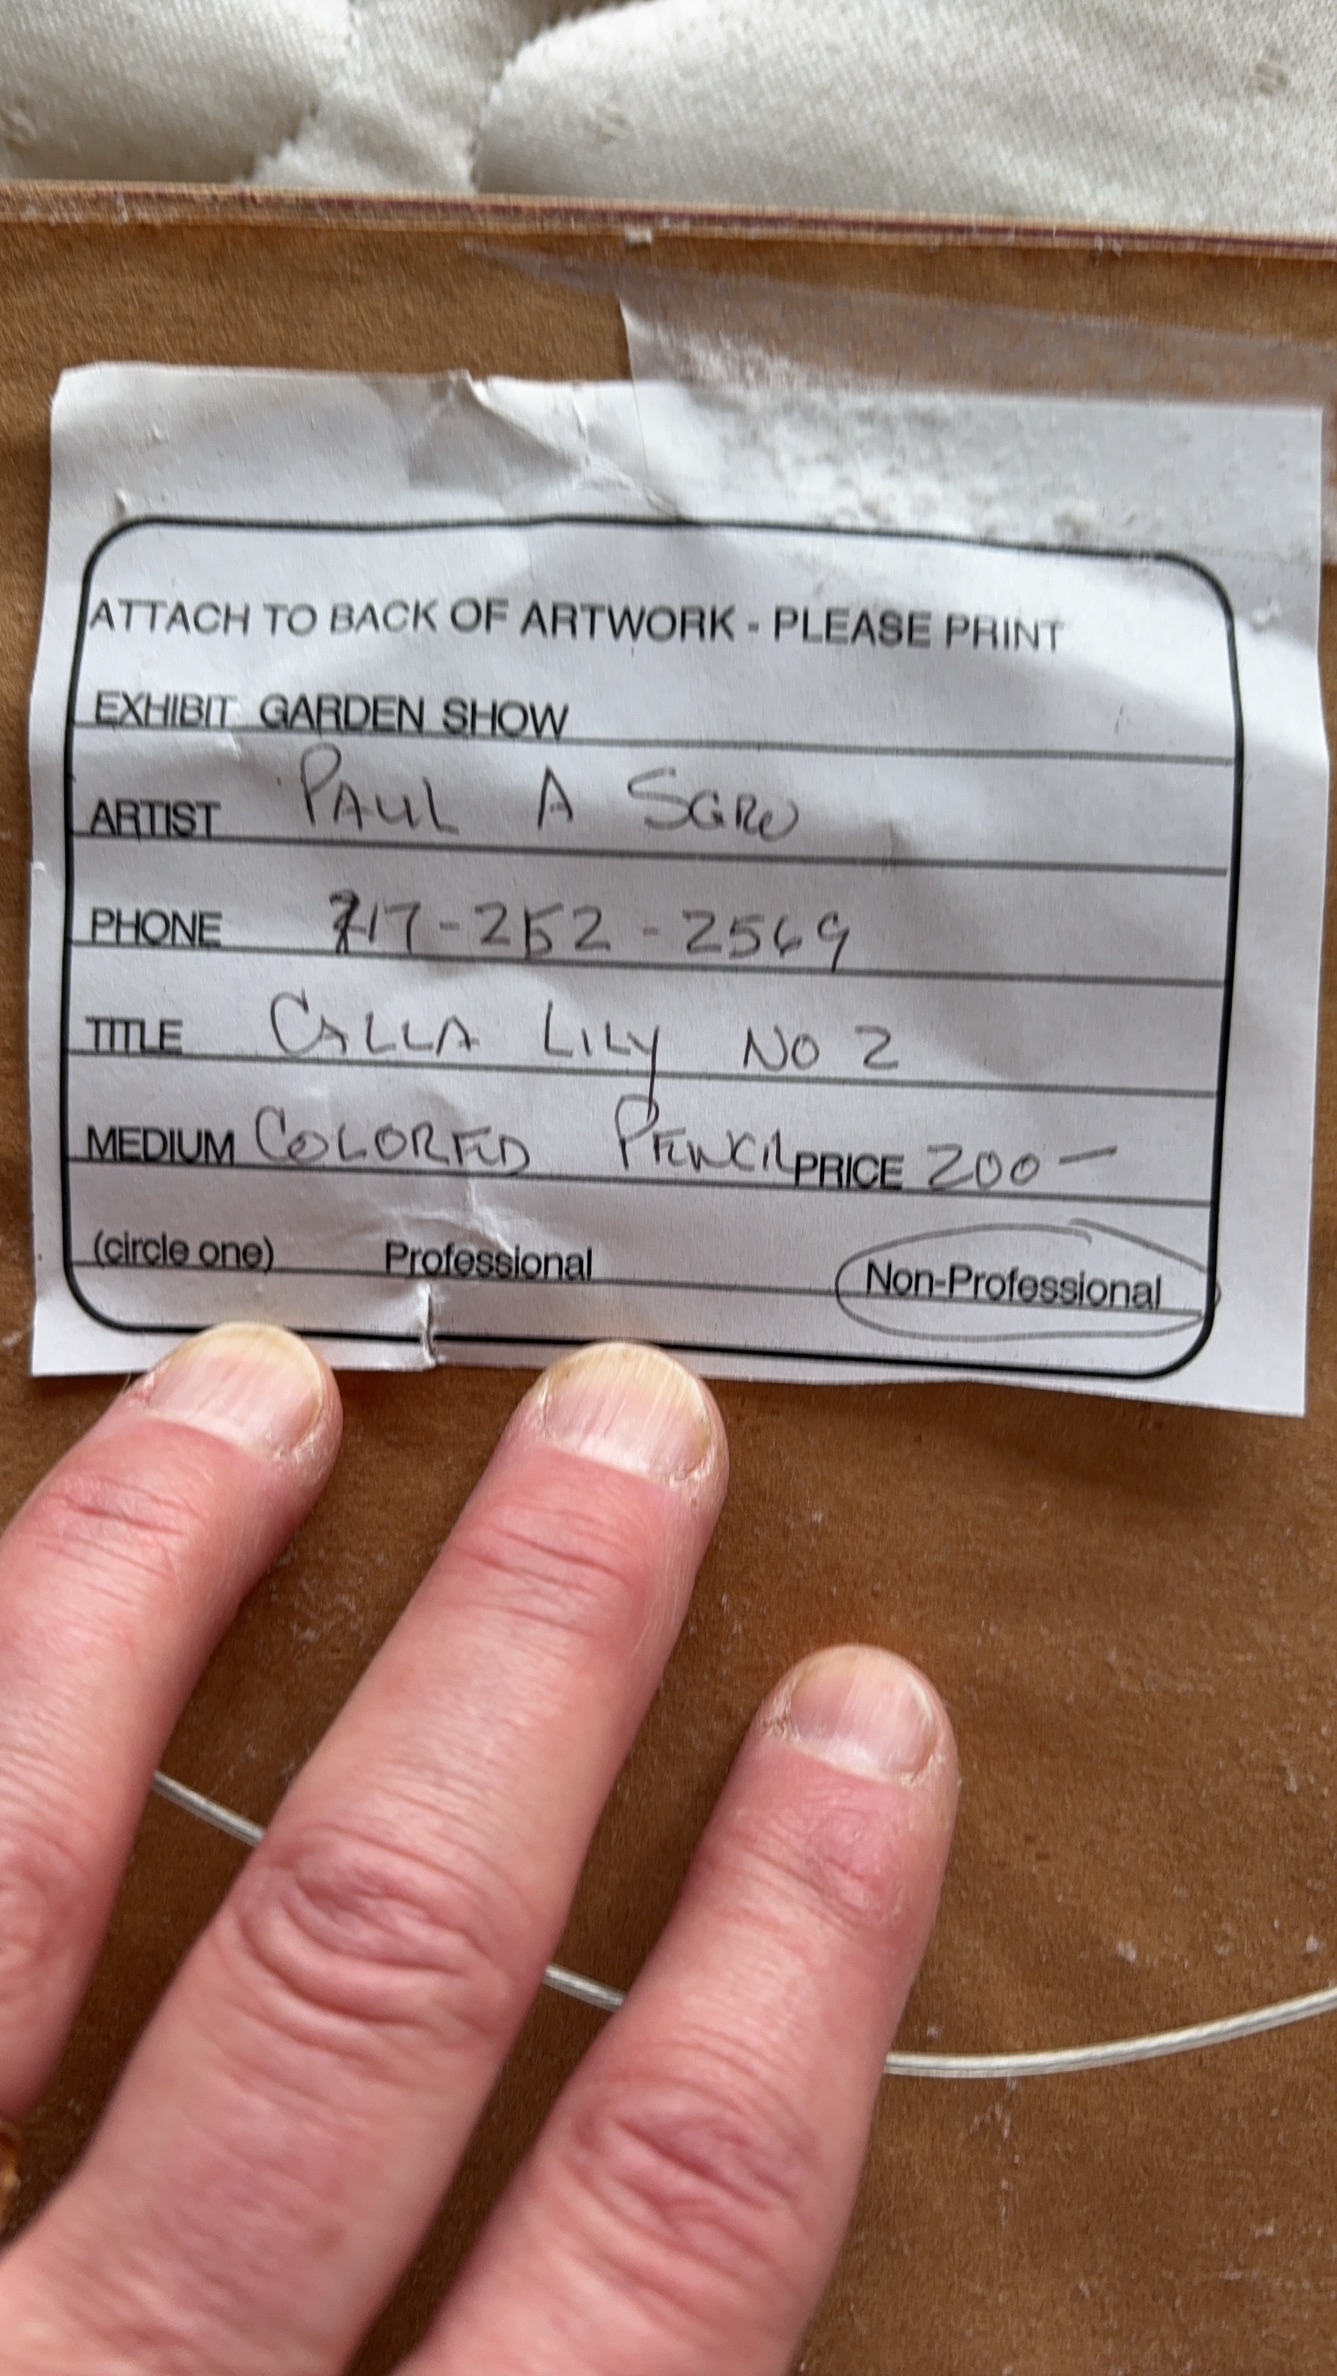 ATTACH TO BACK OF ARTWORK - PLEASE PRINT
EXHIBIT GARDEN SHOW
ARTIST PAUL A SGRO
PHONE 717-252-2569
TITLE CALLA LILY NO 2
MEDIUM COLORED PENCIL PRICE 200-
(circle one) Professional Non-Professional